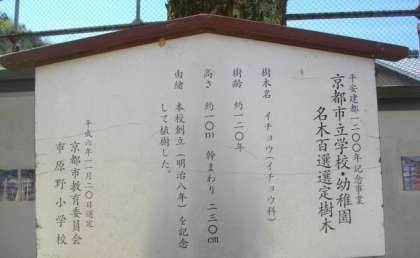 平安建都一二〇〇年記念事業
京都市立学校・幼稚園
名木百選選定樹木
樹木名 イチョウ（イチョウ科）
樹齢 約一二〇年
高さ 約一〇m 幹まわり 二三〇cm
由緒 本校創立（明治八年）を記念
して植樹した。
平成六年一一月二〇日選定
京都市教育委員会
市原野小学校